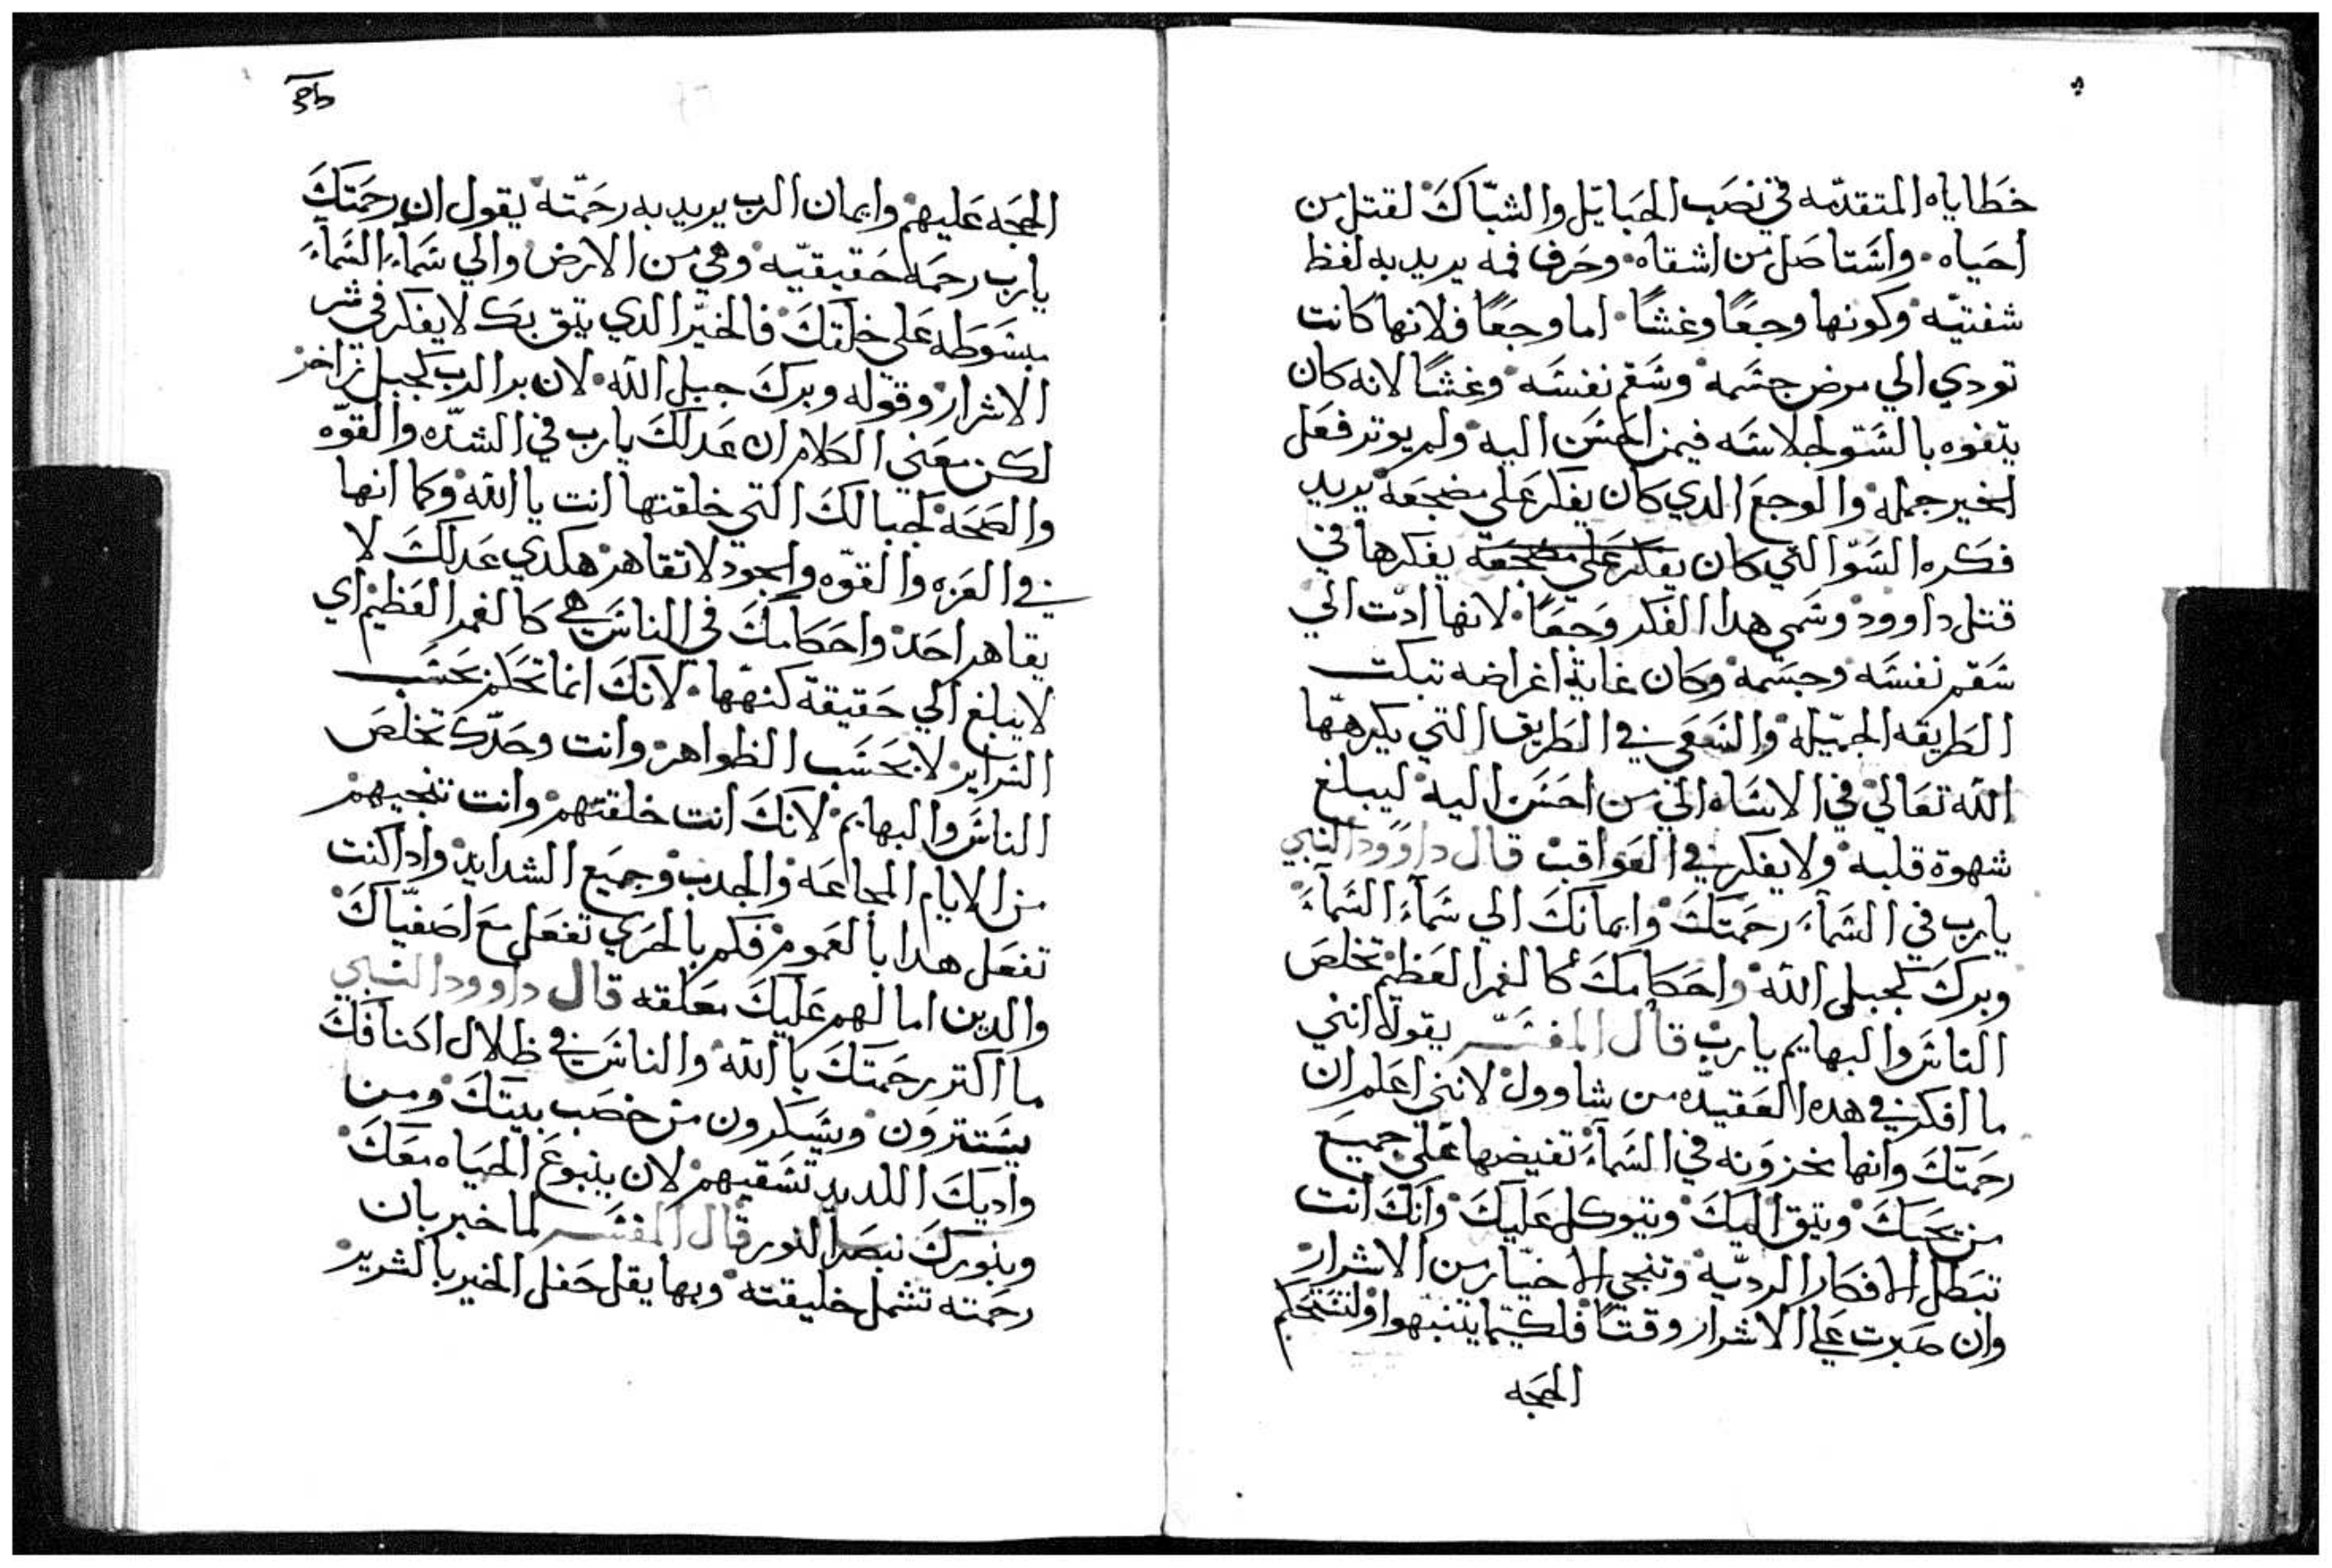 خطاياه المتقدمه في نصب الحبايل والشباك لقتل من
احياه. واستاصل من اشقاه. وحرف فمه يريد به لفظ
شفتيه وكونها وجعًا وغشًا. اما وجعًا فلانها كانت
تودي الي مرض جسمه وسقم نفسه وغشًا لانه كان
يتفوه بالسو لجلاسه فيمن احسن اليه ولم يوتر فعل
الخير جمله والوجع الدي كان يفكر علي مضجعه يريد
فكره السو التي كان يفكر علي مضجعه يفكرها في
قتل داوود وسمي هدا الفكر وجعًا. لانها ادت الي
سقم نفسه وجسمه وكان غاية اغراضه تبكت
الطريقه الجميله والسعي في الطريق التي يكرهها
الله تعالي في الاساه الي من احسن اليه ليبلغ
شهوة قلبه ولا يفكر في العواقب قال داوود النبي
يارب في السماء رحمتك وايمانك الي سماء السماء
وبرك كجبلي الله واحكامك كالغمر العظيم تخلص
الناس والبهايم يارب قال المفسر يقول انني
ما افكر في هده العقيده من شاوول لانني اعلم ان
رحمتك وانها مخزونه في السماء تفيضها علي جميع
من يحبك ويتق اليك ويتوكل عليك وانك انت
تبطل الافكار الرديه وتنجي الاخيار من الاشرار
وان صبرت علي الاشرار وقتًا فلكيما يتنبهوا ولتستحكم
الحجه
36
الحجه عليهم وايمان الرب يريد به رحمته يقول ان رحمتك
يارب رحمه حقيقيه وهي من الارض والي سماء السماء
مبسوطه علي خلقك فالخير الدي يتق بك لا يفكر في شر
الاشرار وقوله وبرك جبل الله. لان بر الرب كجبل زاخر
لكن معني الكلام ان عدلك يارب في الشده والقوه
والصحه كجبالك التي خلقتها انت يا الله وكما انها
في العزه والقوه والجود لا تقاهر هكدي عدلك لا
يقاهر احد واحكامك في الناس هي كالغمر العظيم اي
لا يبلغ الي حقيقة كنهها. لانك انما تحكم بحسب
السراير لا بحسب الظواهر وانت وحدك تخلص
الناس والبهايم لانك انت خلقتهم وانت تنجيهم
من الايام المجاعه والجدب وجميع الشدايد وادا كنت
تفعل هدا بالعموم فكم بالحري تفعل مع اصفياك
والدين امالهم عليك معلقه قال داوود النبي
ما اكتر رحمتك يا الله والناس في ظلال اكنافك
يستترون ويسكرون من خصب بيتك ومن
واديك اللديد تسقيهم لان ينبوع الحياه معك
وبنورك نبصر النور قال المفسر لما خبر بان
رحمته تشمل خليقته وبها يقل حفل الخير بالشرير